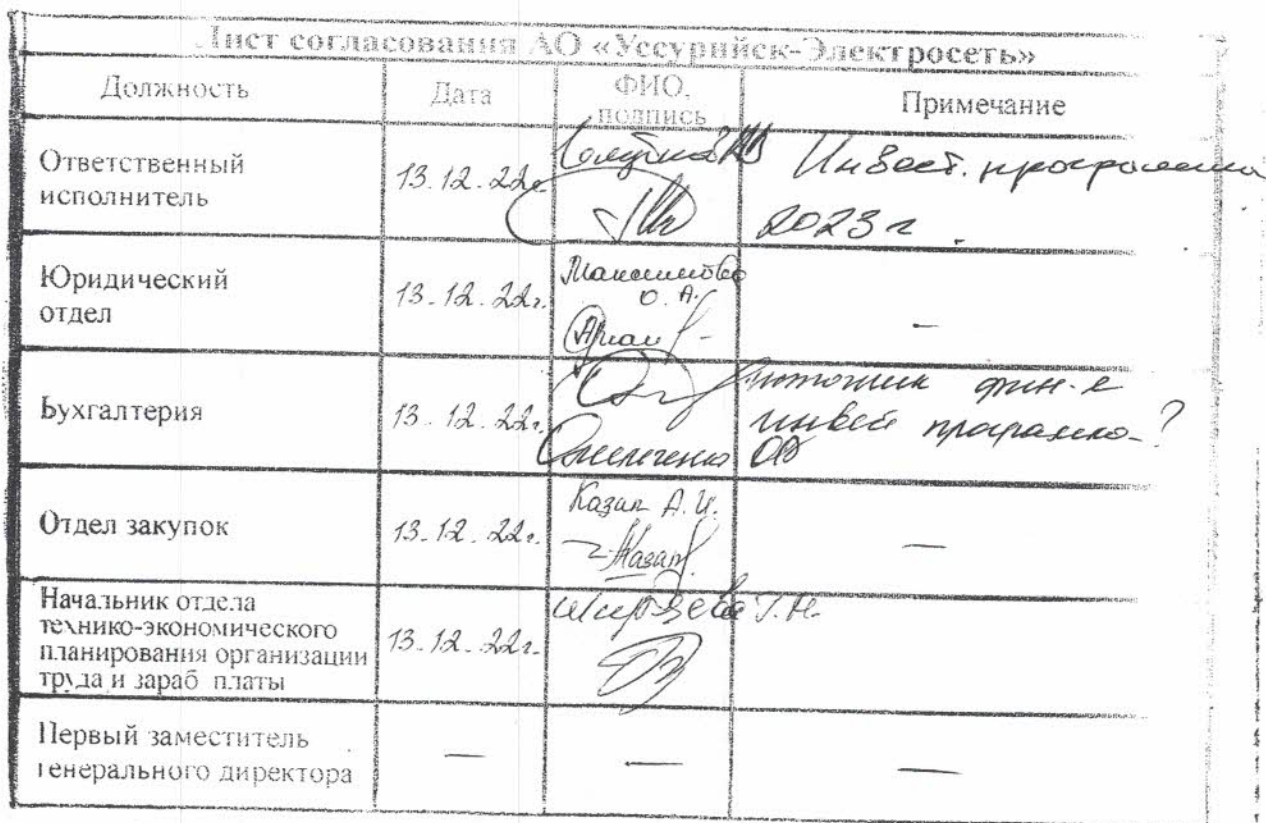 Лист согласования АО «Уссурийск-Электросеть»
Должность Дата ФИО, подпись Примечание
Ответственный исполнитель 13.12.22г. Инвест. программа
2023 г.
Юридический отдел 13.12.22г. О. А. –
Бухгалтерия 13.12.22г. источник фин-я
инвест программа-?
Отдел закупок 13.12.22г. Казак А. И. —
Начальник отдела
технико-экономического
планирования организации
труда и зараб платы 13.12.22г.
Первый заместитель
генерального директора — — —